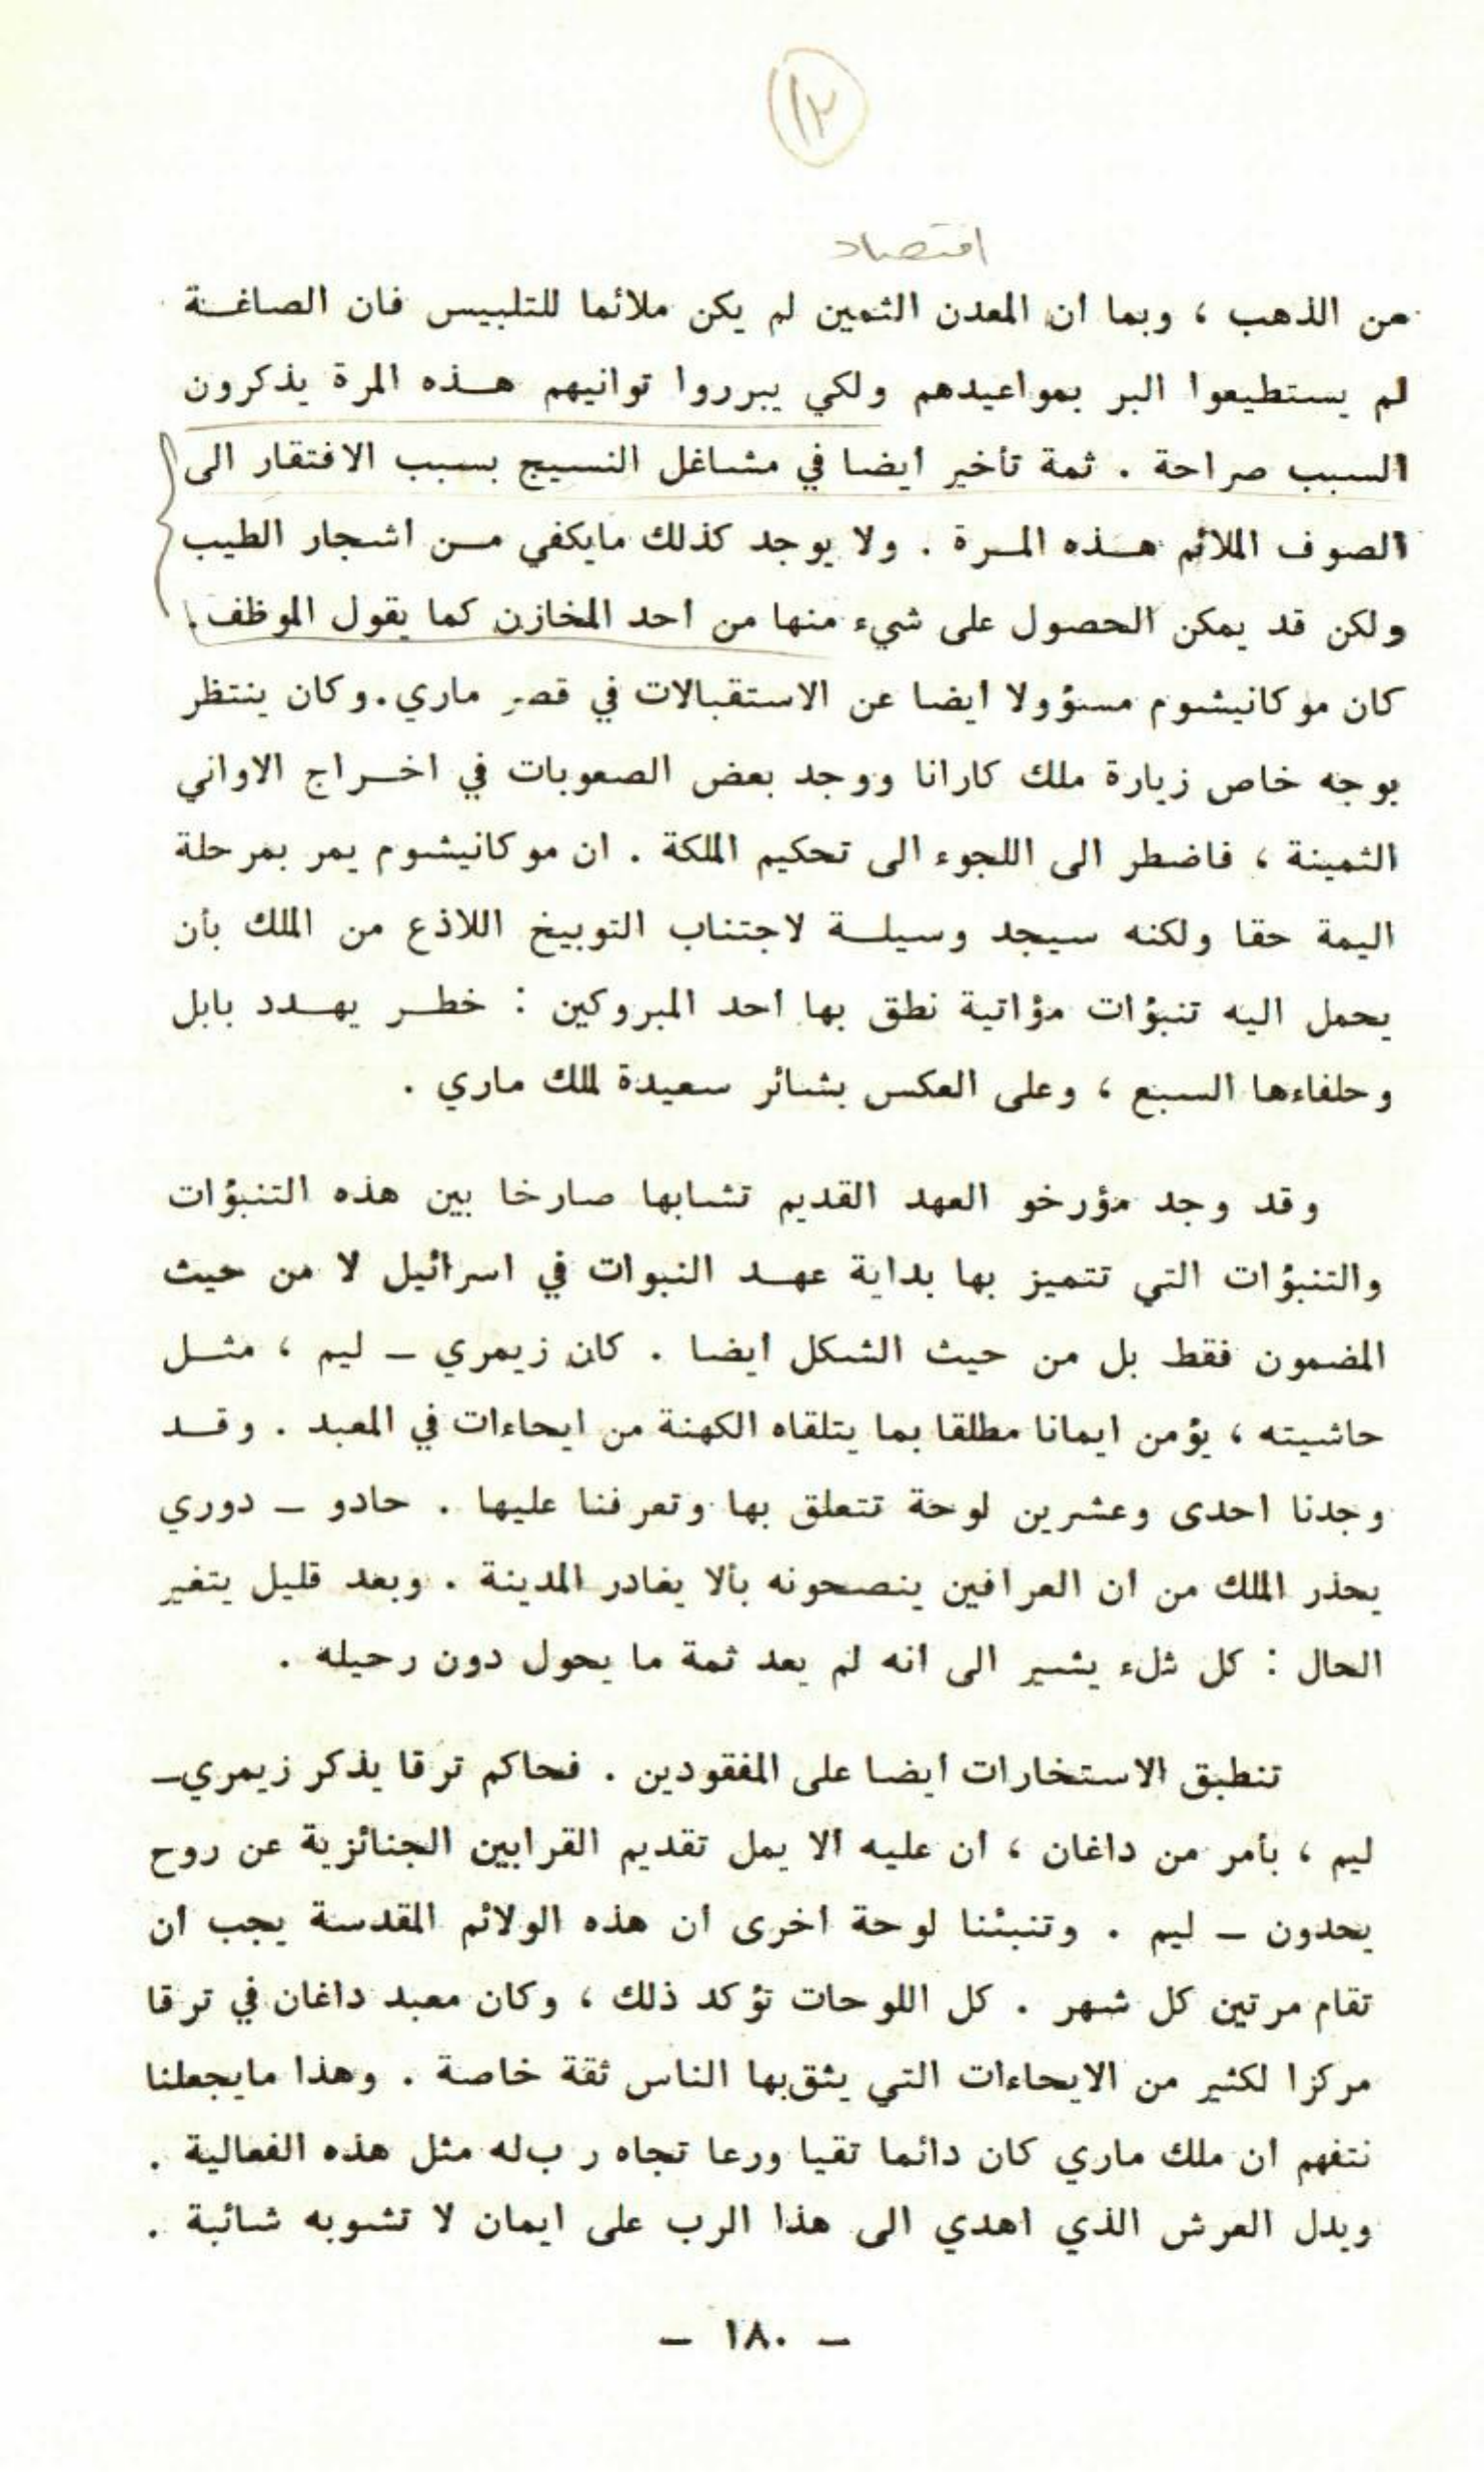 ١٢
اقتصاد
من الذهب ، وبما ان المعدن الثمين لم يكن ملائما للتلبيس فان الصاغـة
لم يستطيعوا البر بمواعيدهم ولكي يبرروا توانيهم هـذه المرة يذكرون
السبب صراحة . ثمة تأخير ايضا في مشاغل النسيج بسبب الافتقار الى
الصوف الملائم هـذه المـرة . ولا يوجد كذلك مايكفي مـن اشجار الطيب
ولكن قد يمكن الحصول على شيء منها من احد المخازن كما يقول الموظف .
كان موكانيشوم مسؤولا ايضا عن الاستقبالات في قصر ماري.وكان ينتظر
بوجه خاص زيارة ملك كارانا ووجد بعض الصعوبات في اخـراج الاواني
الثمينة ، فاضطر الى اللجوء الى تحكيم الملكة . ان موكانيشوم يمر بمرحلة
اليمة حقا ولكنه سيجد وسيلـة لاجتناب التوبيخ اللاذع من الملك بأن
يحمل اليه تنبؤات مؤاتية نطق بها احد المبروكين : خطـر يهـدد بابل
وحلفاءها السبع ، وعلى العكس بشائر سعيدة لملك ماري .
وقد وجد مؤرخو العهد القديم تشابها صارخا بين هذه التنبؤات
والتنبؤات التي تتميز بها بداية عهـد النبوات في اسرائيل لا من حيث
المضمون فقط بل من حيث الشكل ايضا . كان زيمري ـ ليم ، مثـل
حاشيته ، يؤمن ايمانا مطلقا بما يتلقاه الكهنة من ايحاءات في المعبد . وقـد
وجدنا احدى وعشرين لوحة تتعلق بها وتعرفنا عليها . حادو ـ دوري
يحذر الملك من ان العرافين ينصحونه بألا يغادر المدينة . وبعد قليل يتغير
الحال : كل شلء يشير الى انه لم يعد ثمة ما يحول دون رحيله .
تنطبق الاستخارات ايضا على المفقودين . فحاكم ترقا يذكر زيمري_
ليم ، بأمر من داغان ، ان عليه ألا يمل تقديم القرابين الجنائزية عن روح
يحدون ـ ليم . وتنبئنا لوحة اخرى ان هذه الولائم المقدسة يجب ان
تقام مرتين كل شهر . كل اللوحات تؤكد ذلك ، وكان معبد داغان في ترقا
مركزا لكثير من الايحاءات التي يثق بها الناس ثقة خاصة . وهذا مايجعلنا
نتفهم ان ملك ماري كان دائما تقيا ورعا تجاه ر ب له مثل هذه الفعالية .
ويدل العرش الذي اهدي الى هذا الرب على ايمان لا تشوبه شائبة .
ـ ١٨٠ ـ